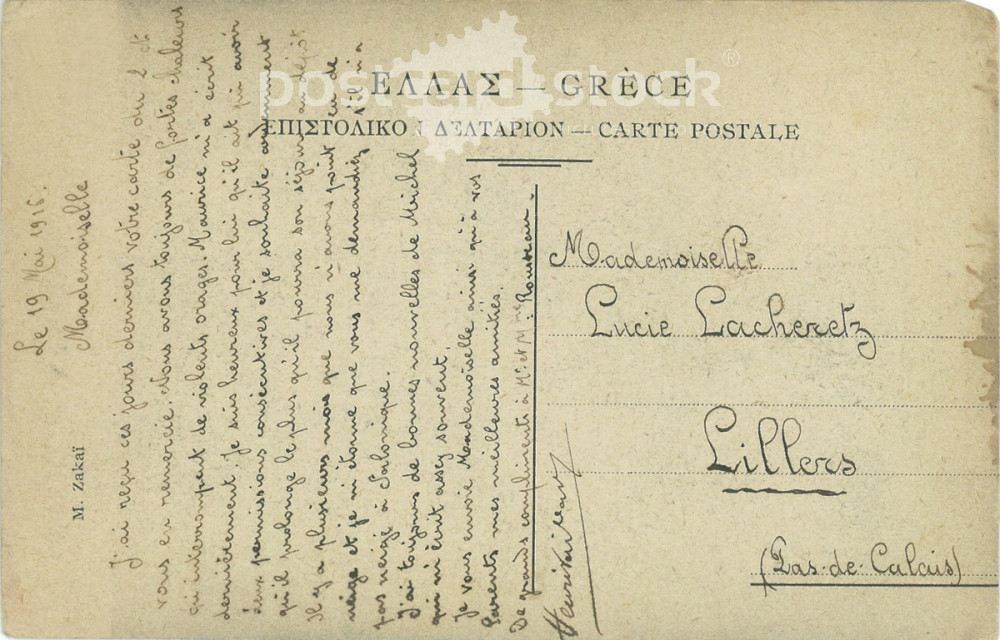 ΕΛΛΑΣ — GRÈCE
ΕΠΙΣΤΟΛΙΚΟΝ ΔΕΛΤΑΡΙΟΝ — CARTE POSTALE
postcard stock®
M. Zakaï
Le 19 Mai 1916.
Mademoiselle
J'ai reçu ces jours derniers votre carte du 2 et
vous en remercie. Nous avons toujours de fortes chaleurs
qu'interrompent de violents orages. Maurice m'a écrit
dernièrement. Je suis heureux pour lui qu'il ait pu avoir
deux permissions consécutives et je souhaite
qu'il prolonge le plus qu'il pourra son séjour au dépôt
Il y a plusieurs mois que nous n'avons point eu de
neige et je m'étonne que vous me demandiez s'il n'a
pas neigé à Salonique.
J'ai toujours de bonnes nouvelles de Michel
qui m'écrit assez souvent.
Je vous envoie Mademoiselle ainsi qu'à vos
Parents mes meilleures amitiés.
De grands compliments à Mr et Mme
Mademoiselle
Lucie Lacheretz
Lillers
(Pas-de-Calais)